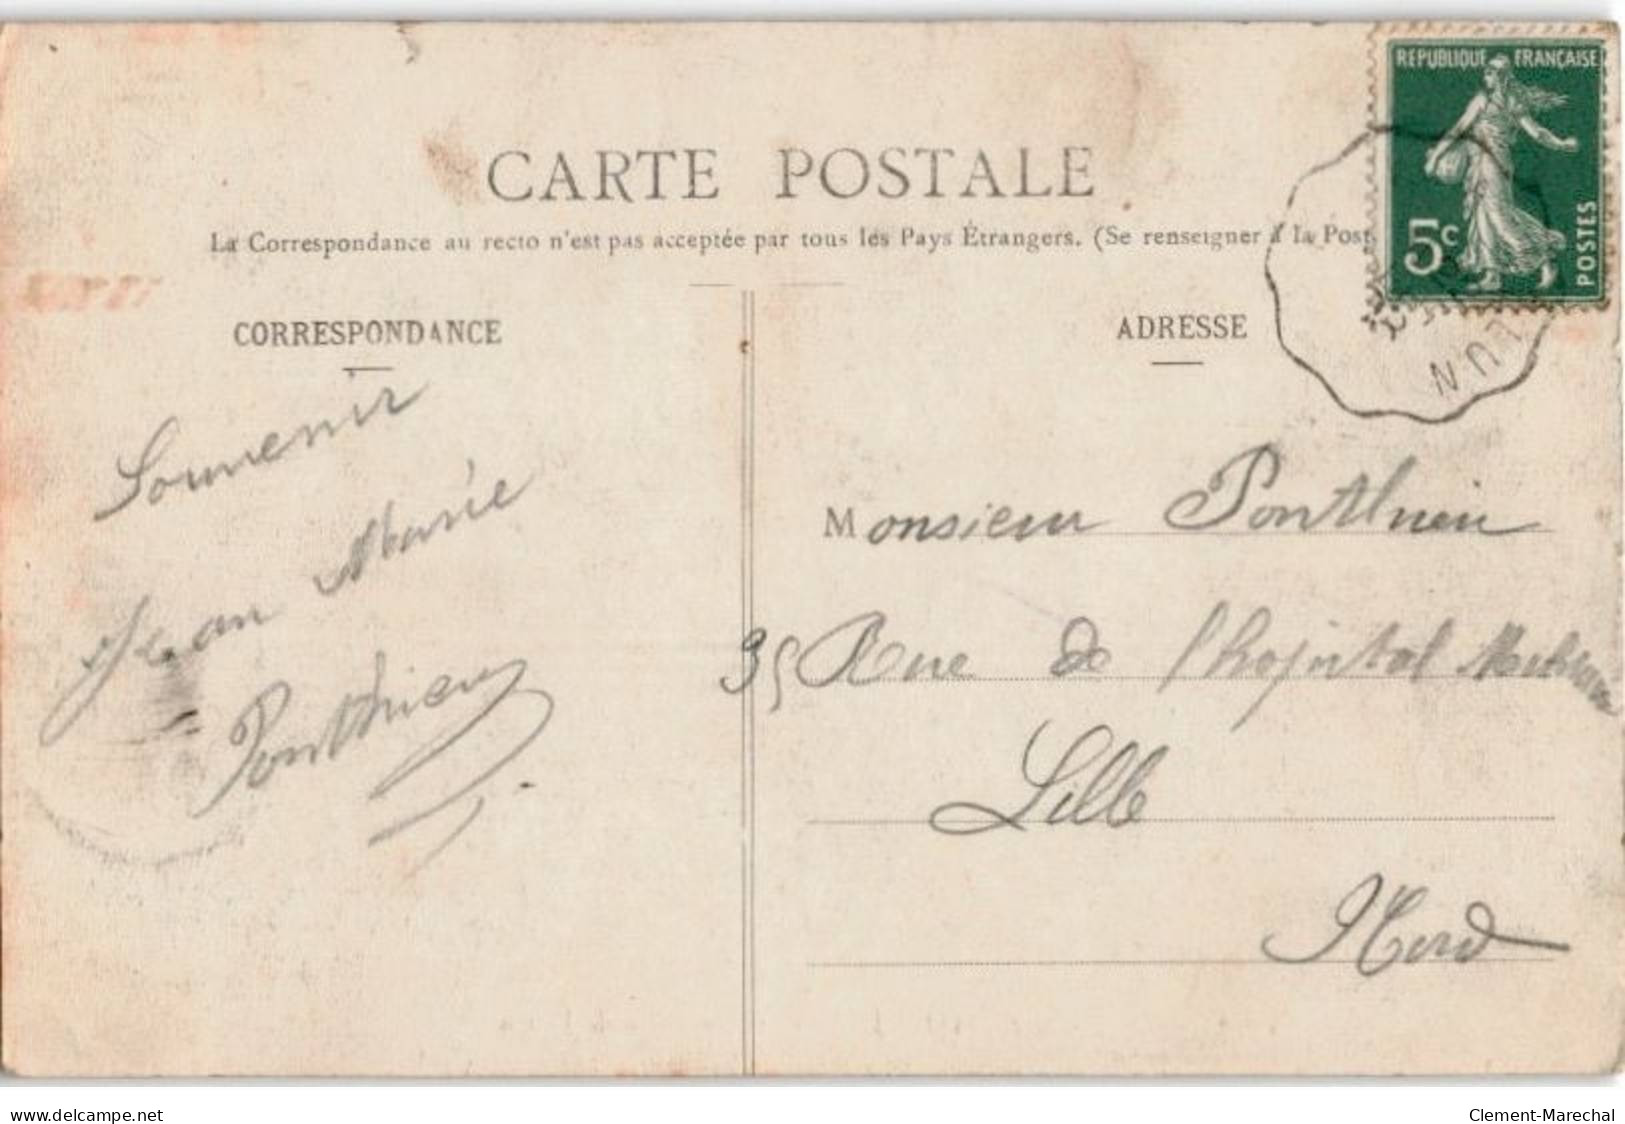 CARTE POSTALE
La Correspondance au recto n'est pas acceptée par tous les Pays Étrangers. (Se renseigner à la Post
REPUBLIQUE FRANÇAISE
5c
POSTES
CORRESPONDANCE
Souvenir
Jean Marie
Ponthieu
ADRESSE
Monsieur Ponthieu
35 Rue de l'hopital
Lille
Nord
www.delcampe.net
Clement-Marechal